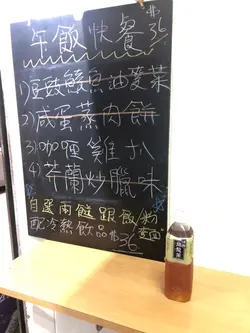 午飯快餐 $36
1) 豆豉鯪魚油麥菜
2) 咸蛋蒸肉餅
3) 咖喱雞扒
4) 芥蘭炒臘味
自選兩餸跟飯/粉麵
配冷熱飲品 $36
烏龍茶